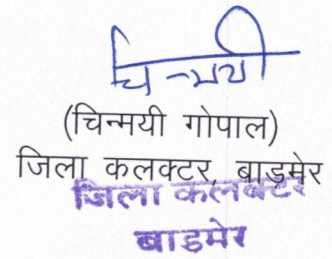 चिन्मयी
(चिन्मयी गोपाल)
जिला कलक्टर, बाड़मेर
जिला कलक्टर
बाडमेर